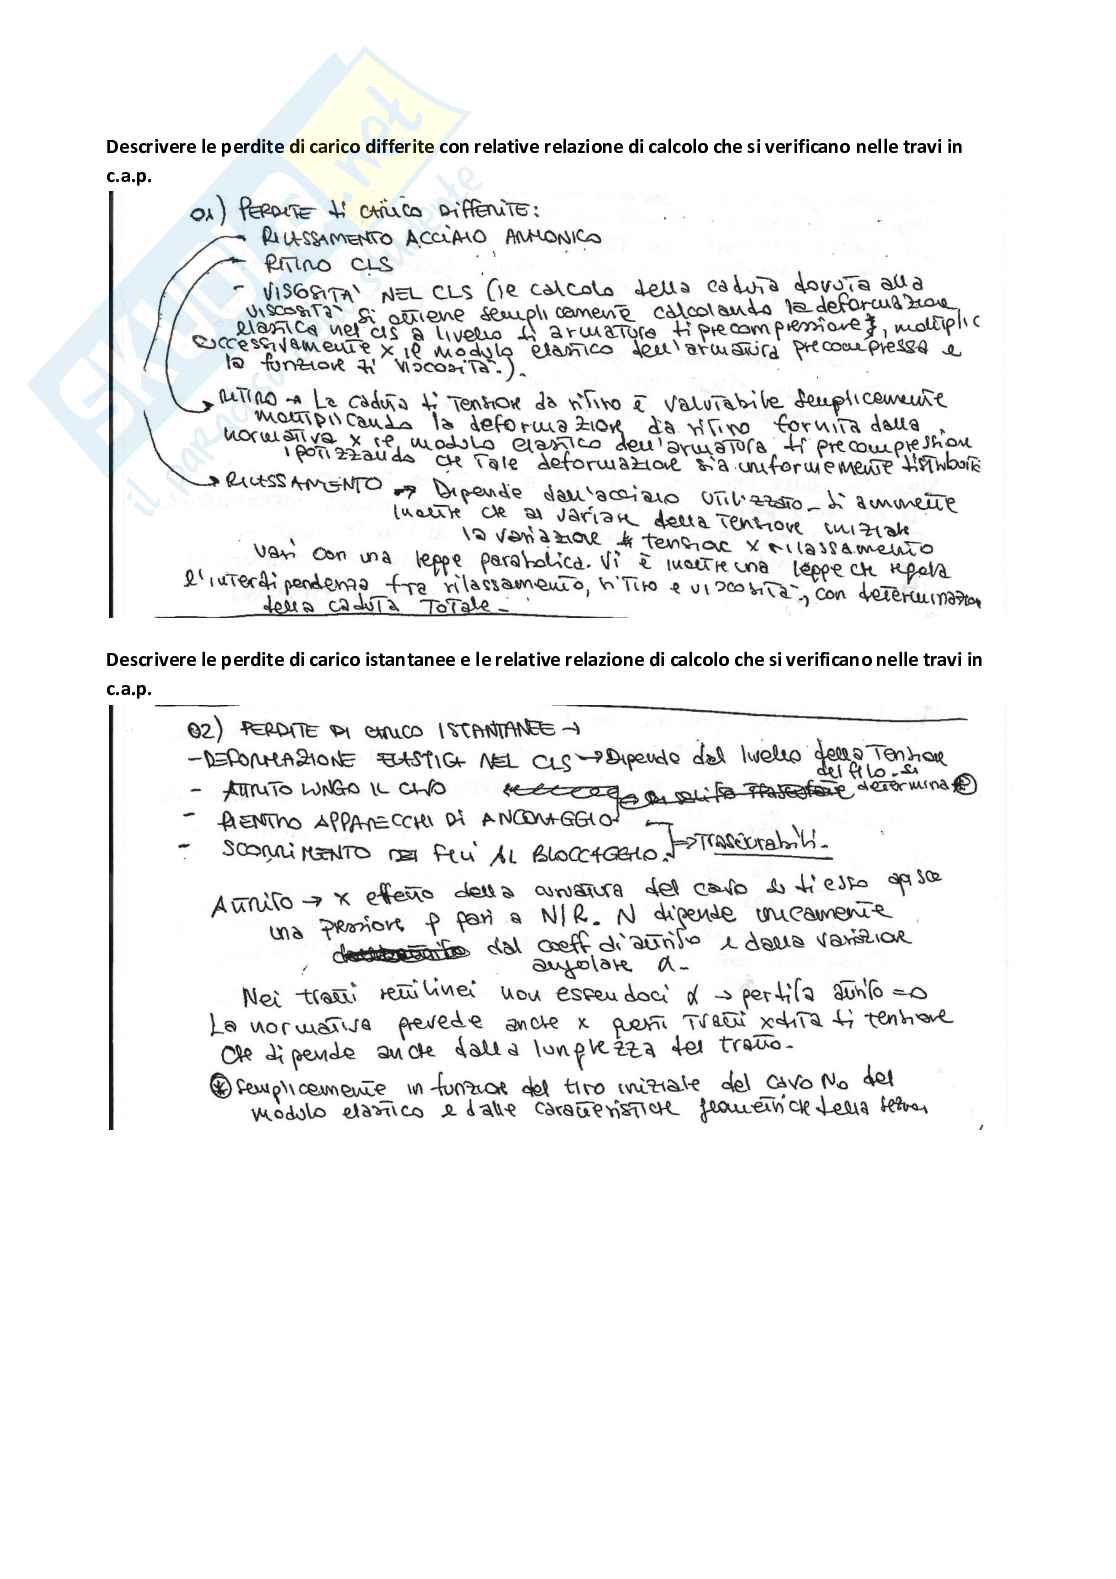 Descrivere le perdite di carico differite con relative relazione di calcolo che si verificano nelle travi in
c.a.p.
01) PERDITE di CARICO DIFFERITE:
- RILASSAMENTO ACCIAIO ARMONICO
- RITIRO CLS
- VISCOSITA' NEL CLS (il calcolo della caduta dovuta alla
viscosità si ottiene semplicemente calcolando la deformazione
elastica nel cls a livello di armatura di precompressione, moltiplic
successivamente x il modulo elastico dell'armatura precompressa e
la funzione di viscosità.).
RITIRO → La caduta di tensione da ritiro è valutabile semplicemente
moltiplicando la deformazione da ritiro fornita dalla
normativa x il modulo elastico dell'armatura di precompression
ipotizzando che tale deformazione sia uniformemente distribuita
RILASSAMENTO → Dipende dall'acciaio utilizzato. Si ammette
inoltre che al variare della tensione iniziale
la variazione di tensione x rilassamento
vari con una legge parabolica. Vi è inoltre una legge che regola
l'interdipendenza fra rilassamento, ritiro e viscosità, con determinazion
della caduta TOTALE.
Descrivere le perdite di carico istantanee e le relative relazione di calcolo che si verificano nelle travi in
c.a.p.
02) PERDITE DI CARICO ISTANTANEE →
- DEFORMAZIONE ELASTICA NEL CLS → Dipende dal livello della tensione
del filo. Si
- ATTRITO LUNGO IL CAVO determina *
- RIENTRO APPARECCHI DI ANCORAGGIO
- SCORRIMENTO DEI FILI AL BLOCCAGGIO. → Trascurabili.
ATTRITO → x effetto della curvatura del cavo su di esso agisce
una pressione p pari a N/R. N dipende unicamente
dal coeff di attrito e dalla variazione
angolare α.
Nei tratti rettilinei non essendoci α → perdita attrito = 0
La normativa prevede anche x questi tratti xdita di tensione
che dipende anche dalla lunghezza del tratto.
* Semplicemente in funzione del tiro iniziale del cavo No del
modulo elastico e dalle caratteristiche geometriche della sezion